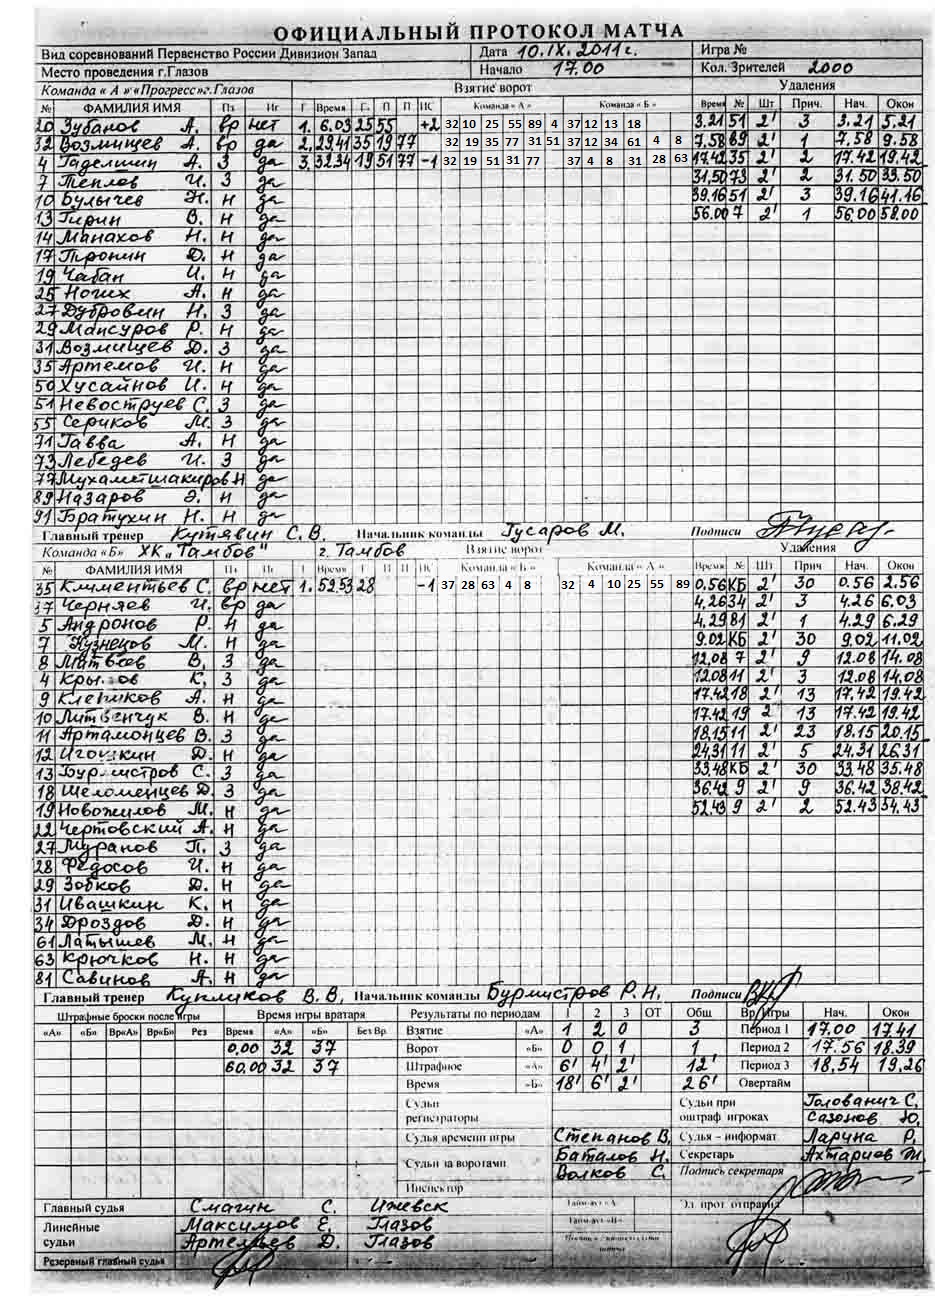 ОФИЦИАЛЬНЫЙ ПРОТОКОЛ МАТЧА
Вид соревнований Первенство России Дивизион Запад Дата 10.IX.2011г. Игра №
Место проведения г.Глазов Начало 17.00 Кол. Зрителей 2000
Команда « А » «Прогресс»г.Глазов Взятие ворот Удаления
№ ФАМИЛИЯ ИМЯ Пз Иг Г Время Г. П П ИС Команда « А » Команда « Б » Время № Шт Прич. Нач. Окон
20 Зубанов А. вр нет 1. 6.03 25 55 +2 32 10 25 55 89 4 37 12 13 18 3.21 51 2' 3 3.21 5.21
32 Возмищев А. вр да 2. 29.41 35 19 77 32 19 35 77 31 51 37 12 34 61 4 8 7.58 89 2' 1 7.58 9.58
4 Гаделшин А. З да 3. 32.34 19 51 77 -1 32 19 51 31 77 37 4 8 31 28 63 17.42 35 2' 2 17.42 19.42
7 Теплов И. З да 31.50 73 2' 2 31.50 33.50
10 Булычев Н. Н да 39.16 51 2' 3 39.16 41.16
13 Гирин В. Н да 56.00 7 2' 1 56.00 58.00
14 Манахов Н. Н да
17 Пронин Д. Н да
19 Чабан И. Н да
25 Ногих А. Н да
27 Дубровин Н. З да
29 Мансуров Р. Н да
31 Возмищев Д. З да
35 Артемов И. Н да
50 Хусайнов И. Н да
51 Невоструев С. З да
55 Сериков М. З да
71 Гавва А. Н да
73 Лебедев И. З да
77 Мухаметшакиров Н да
89 Назаров Э. Н да
91 Братухин Н. Н да
Главный тренер Кутявин С. В. Начальник команды Гусаров М. Подписи
Команда «Б» ХК „Тамбов" г. Тамбов Взятие ворот Удаления
№ ФАМИЛИЯ ИМЯ Пз Иг Г Время Г П П ИС Команда « Б » Команда « А » Время № Шт Прич Нач. Окон
35 Климентьев С. вр нет 1. 52.53 28 -1 37 28 63 4 8 32 4 10 25 55 89 0.56 КБ 2' 30 0.56 2.56
37 Черняев И. вр да 4.26 34 2' 3 4.26 6.03
5 Андронов Р. Н да 4.29 81 2' 1 4.29 6.29
7 Кузнецов М. Н да 9.02 КБ 2' 30 9.02 11.02
8 Матвеев В. З да 12.08 7 2' 9 12.08 14.08
4 К, З да 12.08 11 2' 3 12.08 14.08
9 Клепиков А. Н да 17.42 18 2' 13 17.42 19.42
10 Литвенчук В. Н да 17.42 19 2 13 17.42 19.42
11 Артамонцев В. З да 18.15 11 2' 23 18.15 20.15
12 Игошкин Д. Н да 24.31 11 2' 5 24.31 26.31
13 Бурмистров С. З да 33.48 КБ 2' 30 33.48 35.48
18 Шеломенцев Д. З да 36.42 9 2' 9 36.42 38.42
19 Новожилов М. Н да 52.43 9 2' 2 52.43 54.43
22 Чертовский А. Н да
27 Муранов П. З да
28 Федосов И. Н да
29 Зобков Д. Н да
31 Ивашкин К. Н да
34 Дроздов Д. Н да
61 Латышев М. Н да
63 Крючков Н. Н да
81 Савинов А. Н да
Главный тренер Купликов В. В. Начальник команды Бурмистров Р. Н. Подписи
Штрафные броски после игры Время игры вратаря Результаты по периодам 1 2 3 ОТ Общ Вр. Игры Нач. Окон
«А» «Б» Вр«А» Вр«Б» Рез Время «А» «Б» Без Вр. Взятие «А» 1 2 0 3 Период 1 17.00 17.41
0.00 32 37 Ворот «Б» 0 0 1 1 Период 2 17.56 18.39
60.00 32 37 Штрафное «А» 6' 4' 2' 12' Период 3 18.54 19.26
Время «Б» 18' 6' 2' 26' Овертайм
Судьи регистраторы Судьи при оштраф игроках Голованич С.
Сазонов Ю.
Судья времени игры Степанов В. Судья – информат Ларина Р.
Судьи за воротами Баталов Н. Секретарь Ахтариев М.
Волков С. Подпись секретаря
Инспектор
Главный судья Смагин С. Ижевск Тайм-аут «А» Эл. прот отправил
Линейные судьи Максимов Е. Глазов Тайм-аут «Б»
Артемьев Д. Глазов
Резервный главный судья